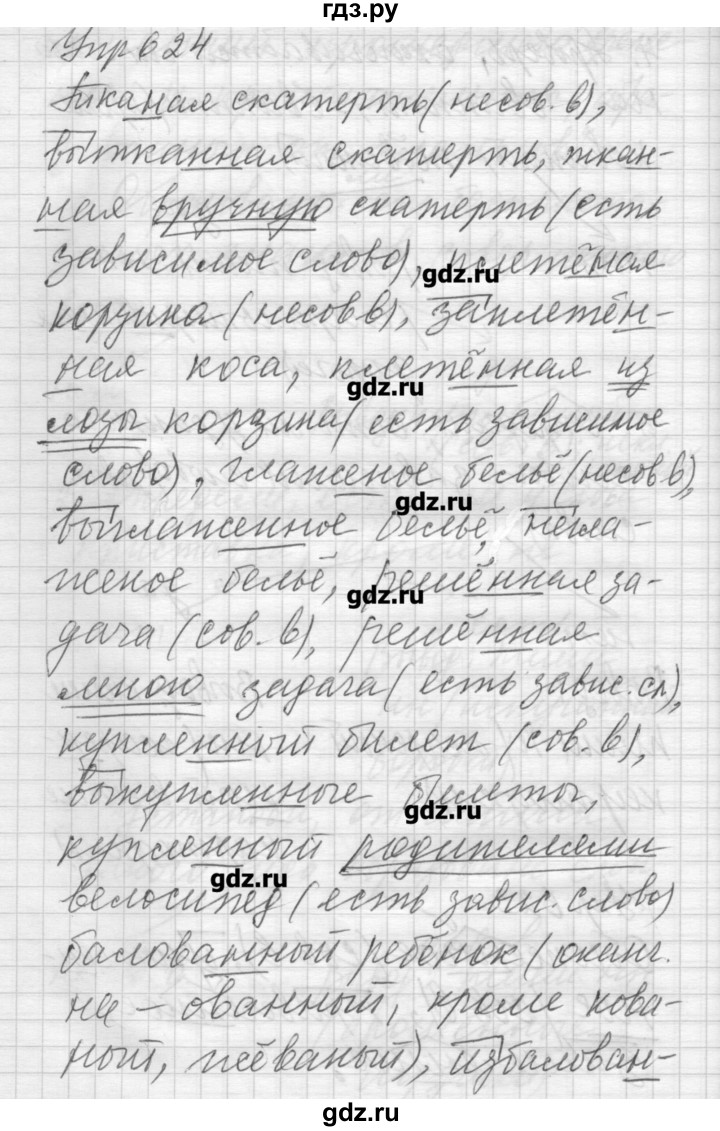 гдз.ру
Упр 624
Тканая скатерть (несов. в),
вытканная скатерть, ткан-
ная вручную скатерть (есть
зависимое слово), плетёная
gdz.ru
корзина (несов в), заплетён-
ная коса, плетённая из
gdz.ru
лозы корзина (есть зависимое
слово), глаженое бельё (несов в),
gdz.ru
выглаженное бельё, негла-
женое бельё, решённая за-
gdz.ru
дача (сов. в), решённая
мною задача (есть завис. сл),
купленный билет (сов. в),
выкупленные билеты,
gdz.ru
купленный родителями
gdz.ru
велосипед (есть завис. слово)
балованный ребёнок (оканч.
на – ованный, кроме кова-
ный, жёваный), избалован-
gdz.ru